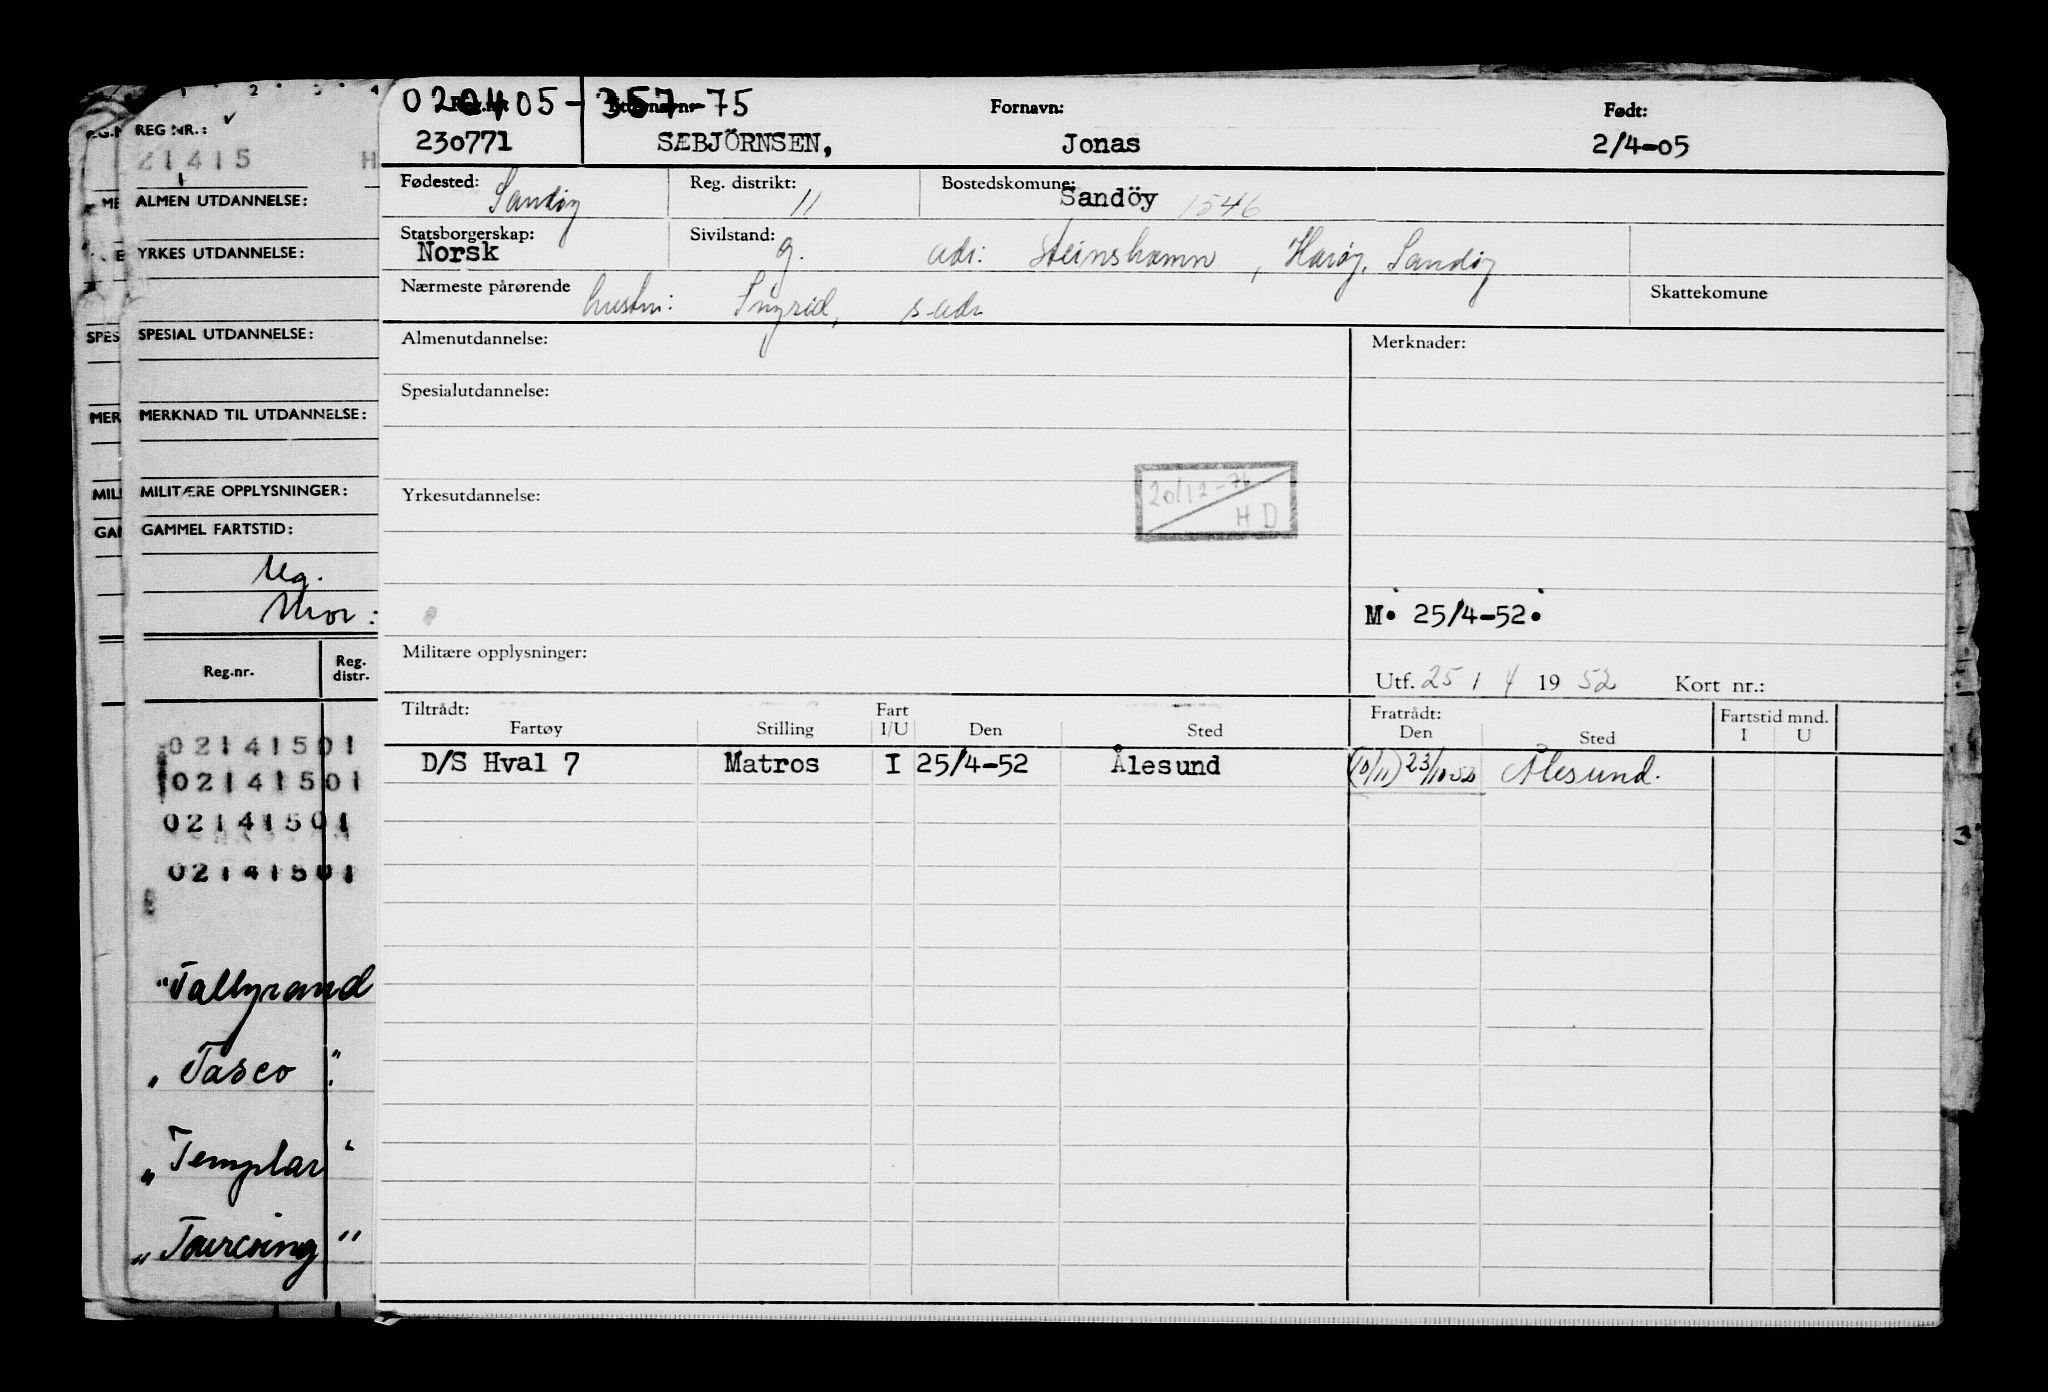 020405-357-75
Etternavn: Fornavn: Født:
230771 SÆBJÖRNSEN, Jonas 2/4-05
Fødested: Sandøy Reg. distrikt: 11 Bostedskomune: Sandöy 1546
Statsborgerskap: Norsk Sivilstand: g. adr: Steinshamn, Harøy, Sandøy
Nærmeste pårørende hustru: Ingrid, s. adr Skattekomune
Almenutdannelse: Merknader:
Spesialutdannelse:
Yrkesutdannelse:
20/12-76
H D
M. 25/4-52.
Militære opplysninger:
Utf. 25 / 4 19 52 Kort nr.:
Tiltrådt: Fart Fratrådt: Fartstid mnd.
Fartøy Stilling I/U Den Sted Den Sted I U
D/S Hval 7 Matros I 25/4-52 Ålesund (10/11) 23/10-52 Ålesund.
REG NR.:
21415 H
ALMEN UTDANNELSE:
YRKES UTDANNELSE:
SPESIAL UTDANNELSE:
MERKNAD TIL UTDANNELSE:
MILITÆRE OPPLYSNINGER:
GAMMEL FARTSTID:
Ug.
Mor:
Reg.nr. Reg. distr.
02141501
02141501
02141501
02141501
"Tallyrand
"Tasco":
"Templar"
"Tourcoing"
SPES
MER
MILI
GAI
3